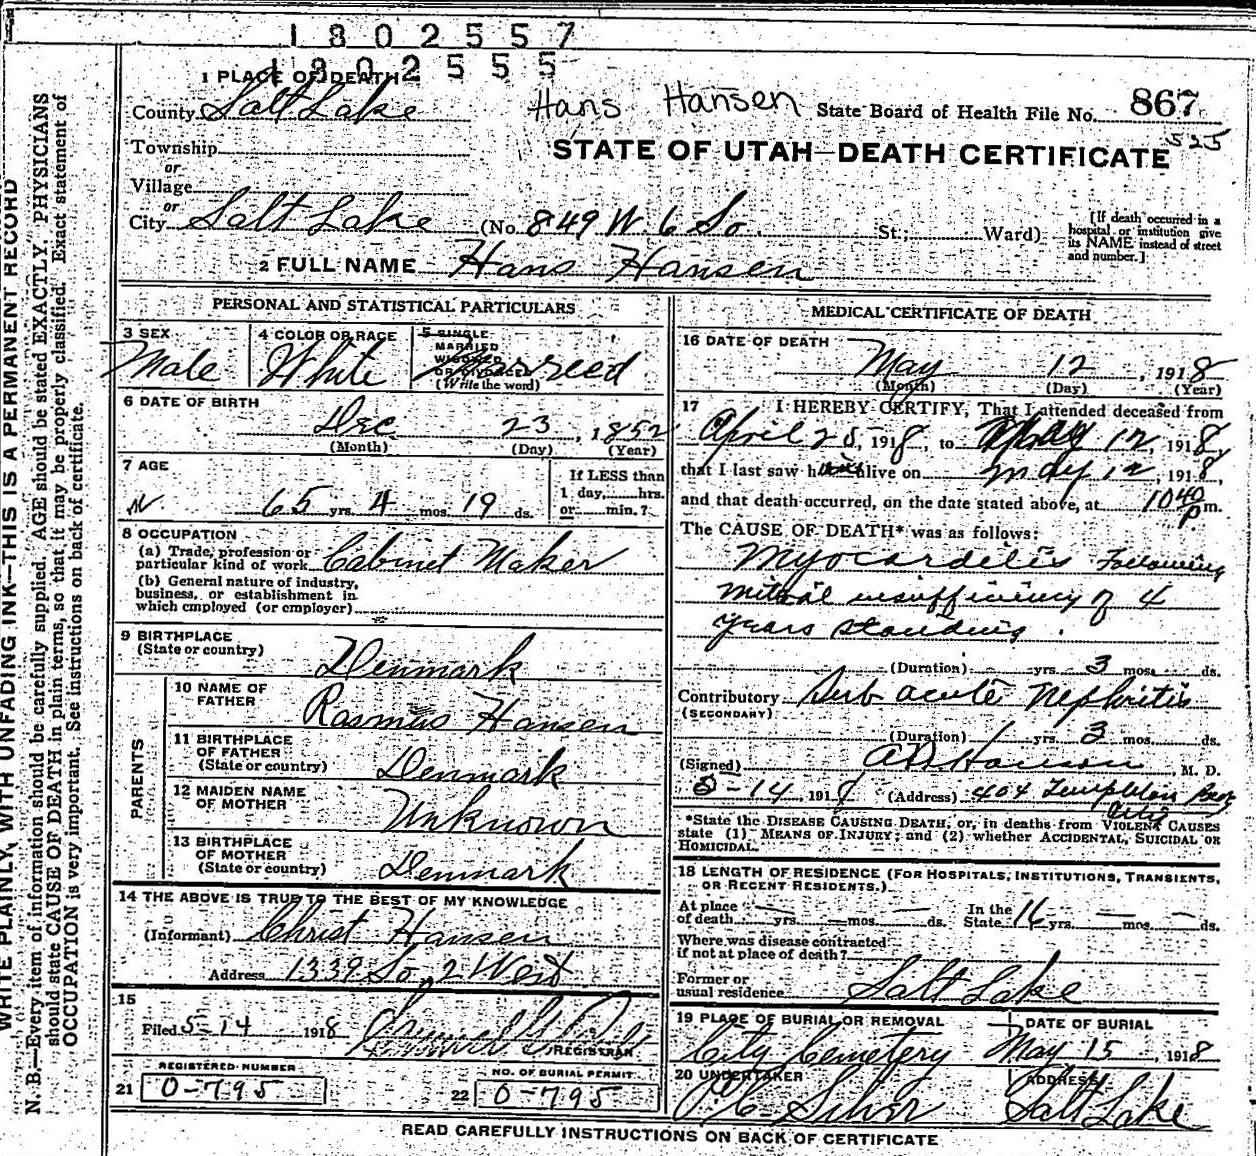 1802557
1802555
1 PLACE OF DEATH
County Salt Lake
Hans Hansen
State Board of Health File No. 867
525
Township
or
Village
or
City Salt Lake (No. 849 W. 6 So. St.; Ward)
STATE OF UTAH—DEATH CERTIFICATE
[If death occurred in a
hospital or institution give
its NAME instead of street
and number.]
2 FULL NAME Hans Hansen
PERSONAL AND STATISTICAL PARTICULARS
3 SEX
Male
4 COLOR OR RACE
White
5 SINGLE
MARRIED
WIDOWED
OR DIVORCED
(Write the word)
6 DATE OF BIRTH
Dec 23, 1852
(Month) (Day) (Year)
7 AGE
65 yrs. 4 mos. 19 ds.
If LESS than
1 day, hrs.
or min.?
8 OCCUPATION
(a) Trade, profession or
particular kind of work Cabinet Maker
(b) General nature of industry,
business, or establishment in
which employed (or employer)
9 BIRTHPLACE
(State or country)
Denmark
PARENTS
10 NAME OF
FATHER
Rasmus Hansen
11 BIRTHPLACE
OF FATHER
(State or country)
Denmark
12 MAIDEN NAME
OF MOTHER
Unknown
13 BIRTHPLACE
OF MOTHER
(State or country)
Denmark
14 THE ABOVE IS TRUE TO THE BEST OF MY KNOWLEDGE
(Informant) Christ Hansen
Address 1339 So. 2 West
15
Filed 5-14 1918
REGISTRAR
REGISTERED NUMBER
21 0-795
NO. OF BURIAL PERMIT
22 0-795
MEDICAL CERTIFICATE OF DEATH
16 DATE OF DEATH
May 12, 1918
(Month) (Day) (Year)
17 I HEREBY CERTIFY, That I attended deceased from
April 25, 1918, to May 12, 1918,
that I last saw h alive on May 12, 1918,
and that death occurred, on the date stated above, at 10 40 P m.
The CAUSE OF DEATH* was as follows:
Myocardelis Following
mitral insufficiency of 4
years standing.
(Duration) yrs. 3 mos. ds.
Contributory Sub acute Nephritis
(SECONDARY)
(Duration) 1 yrs. 3 mos. ds.
(Signed) M. D.
5-14, 1918 (Address) 404 Templeton
City
*State the DISEASE CAUSING DEATH, or, in deaths from VIOLENT CAUSES
state (1) MEANS OF INJURY; and (2) whether ACCIDENTAL, SUICIDAL OR
HOMICIDAL.
18 LENGTH OF RESIDENCE (FOR HOSPITALS, INSTITUTIONS, TRANSIENTS,
OR RECENT RESIDENTS.)
At place
of death yrs. mos. ds.
In the
State 16 yrs. mos. ds.
Where was disease contracted
if not at place of death?
Former or
usual residence Salt Lake
19 PLACE OF BURIAL OR REMOVAL
City Cemetery
DATE OF BURIAL
May 15, 1918
20 UNDERTAKER
Silver
ADDRESS
Salt Lake
READ CAREFULLY INSTRUCTIONS ON BACK OF CERTIFICATE
WRITE PLAINLY, WITH UNFADING INK—THIS IS A PERMANENT RECORD
N. B.—Every item of information should be carefully supplied. AGE should be stated EXACTLY. PHYSICIANS
should state CAUSE OF DEATH in plain terms, so that it may be properly classified. Exact statement of
OCCUPATION is very important. See instructions on back of certificate.